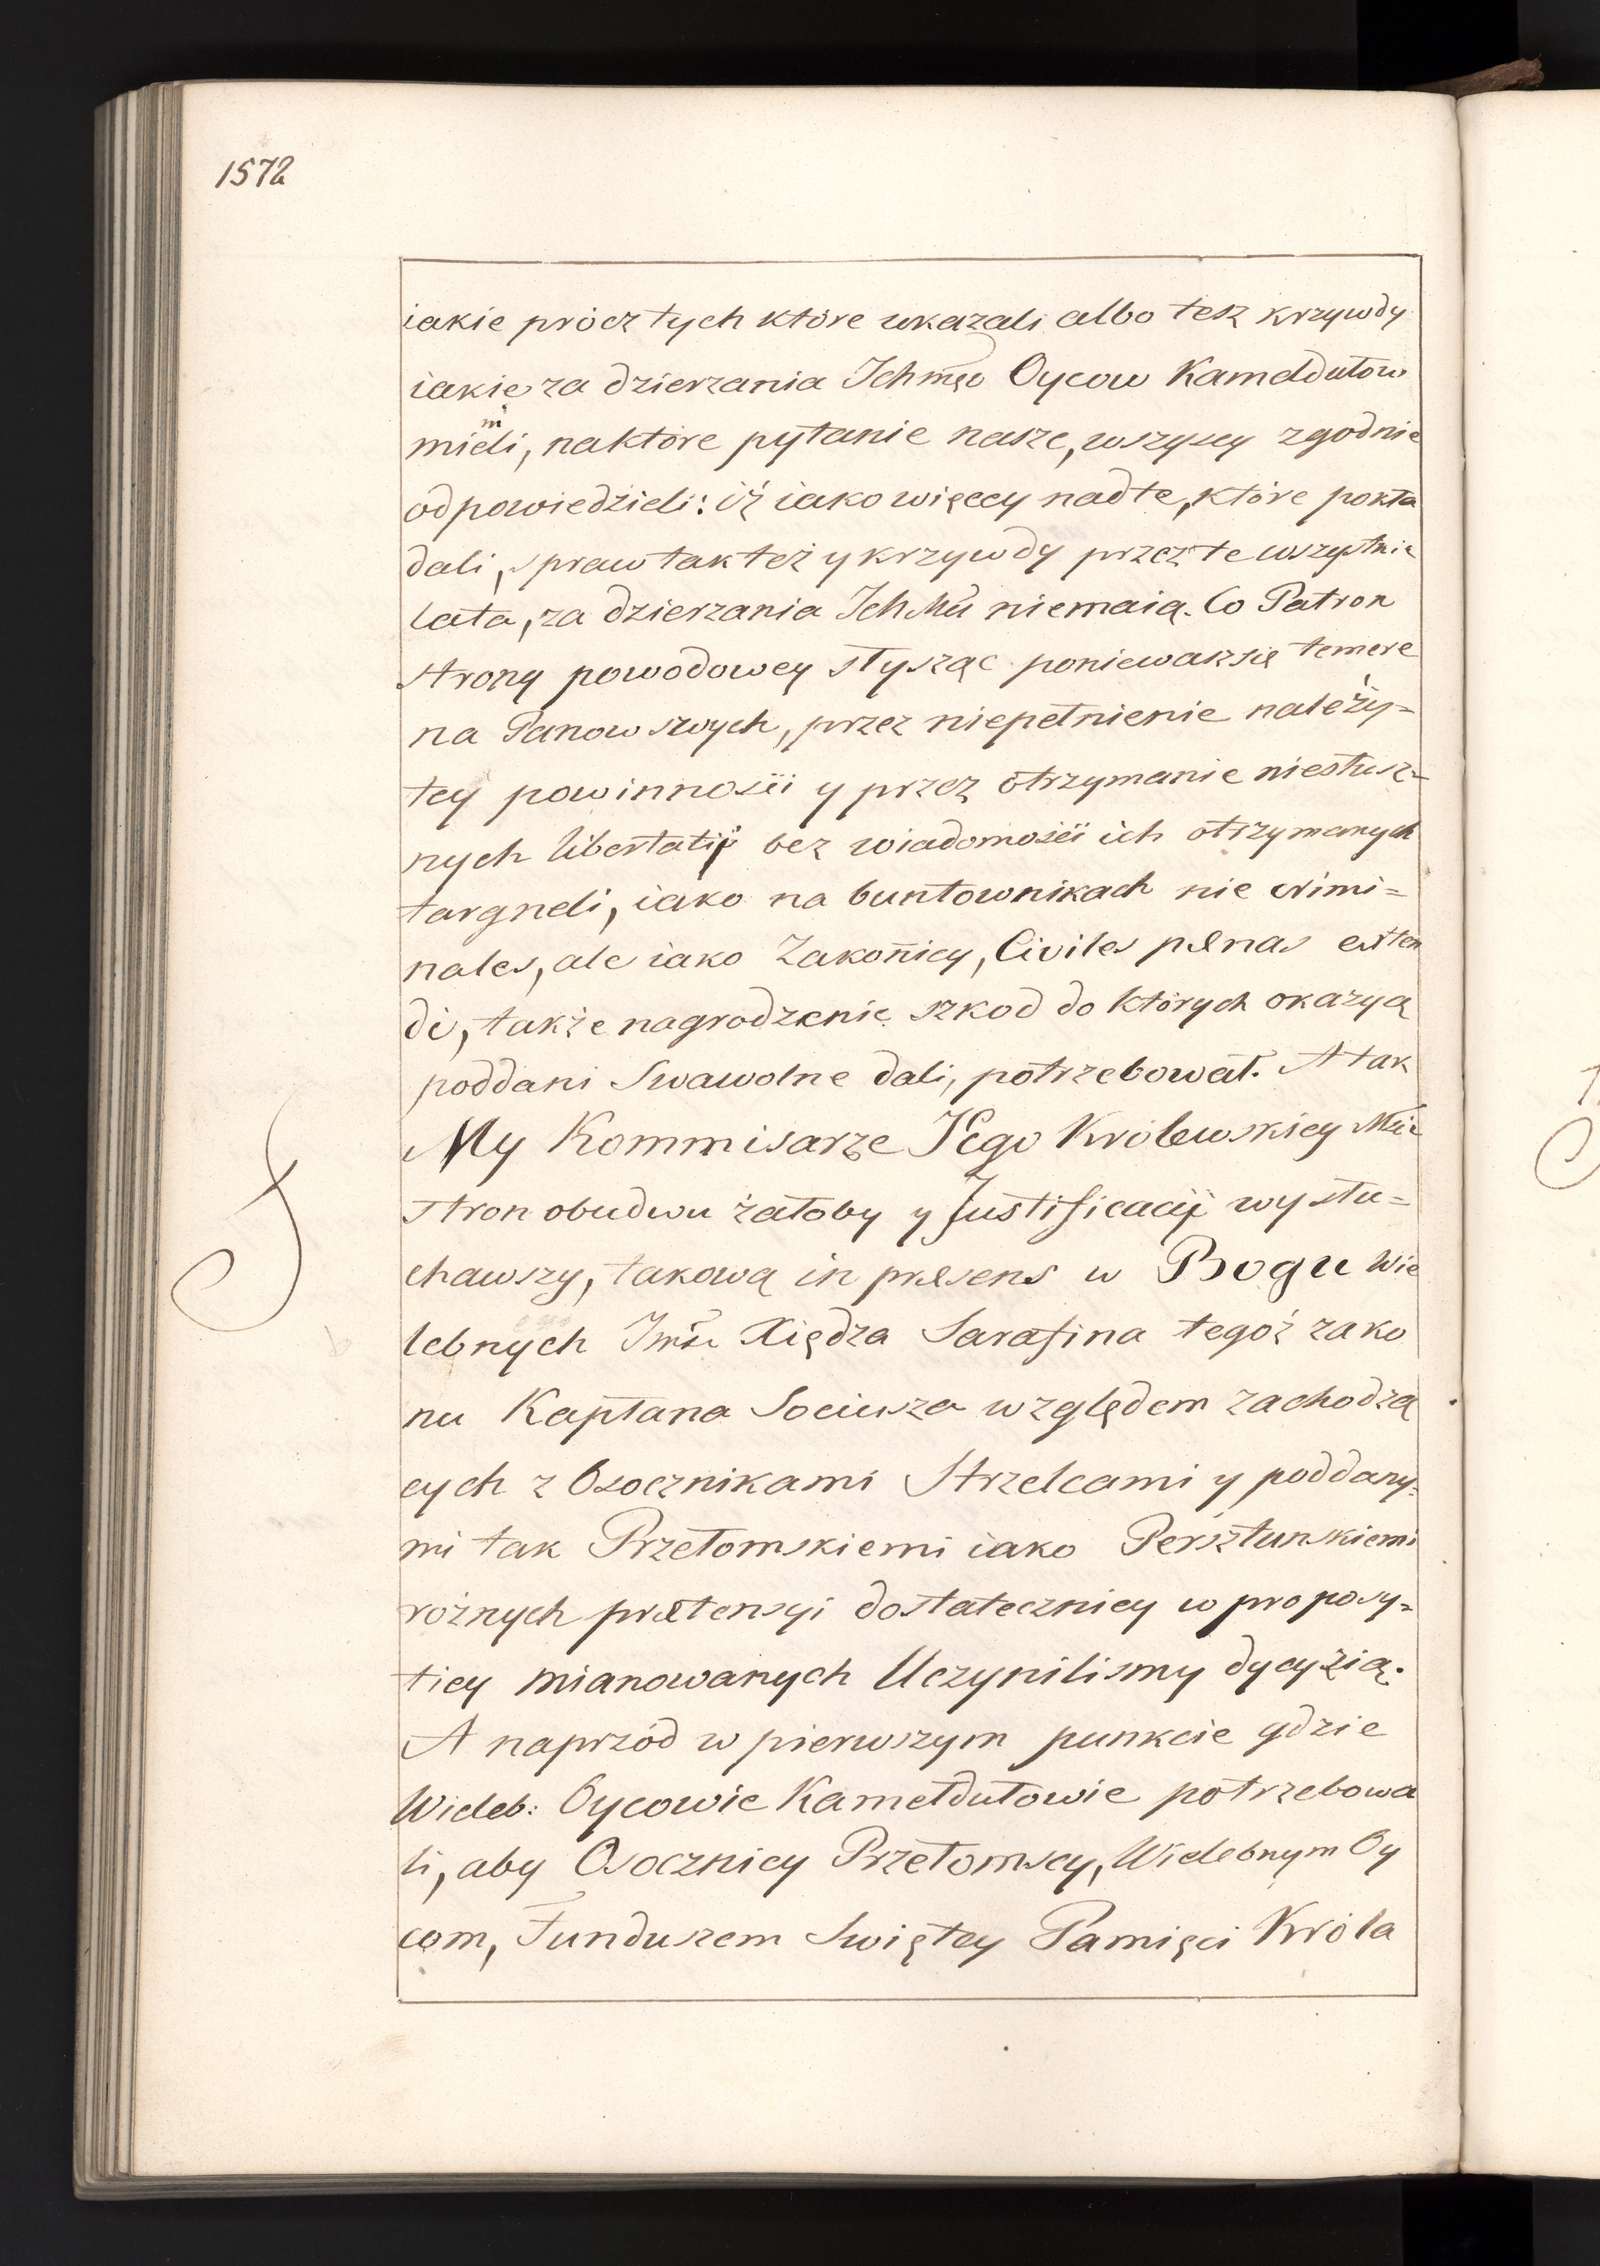 1572
iakie prócz tych które ukazali albo tesz krzywdy
iakie za dzierzania Ichmęo Oycow Kameldutow
mieli, naktóre pytanie nasze, wszyscy zgodnie
odpowiedzieli: iż iako więcey nadte, które pokła
dali, spraw tak też y krzywdy przez te wszystkie
lata, za dzierzania Ich Mći niemaią. Co Patron
strony powodowey słysząc poniewasz się temere
na Panow swych, przez niepełnienie należy=
tey powinnośći y przez otrzymanie niesłusz=
nych libertatij bez wiadomośći ich otrzymanych
targneli, iako na buntownikach nie crimi=
nales, ale iako Zakonnicy, Civiles pænas exten
di, także nagrodzenie szkod do których okazyą
poddani Swawolne dali, potrzebował. A tak
My Kommisarze JEgo Królewskiey Mći
stron obudwu żałoby y Justificacij wysłu=
chawszy, takową in præsens w Bogu Wie
lebnych Imści Xiędza Sarafina tegoż zako
nu Kapłana Sociusza względem zachodzą
cych z Osocznikami Strzelcami y poddany=
mi tak Przełomskiemi iako Persztunskiemi
rożnych prætensyi dostateczniey w proposy=
ticy mianowanych Uczynilismy dycyzią.
A naprzód w pierwszym punkcie gdzie
Wieleb: Oycowie Kamełdutowie potrzebowa
li, aby Osocznicy Przełomscy, Wielebnym Oy
com, Funduszem Swiętey Pamięci Króla